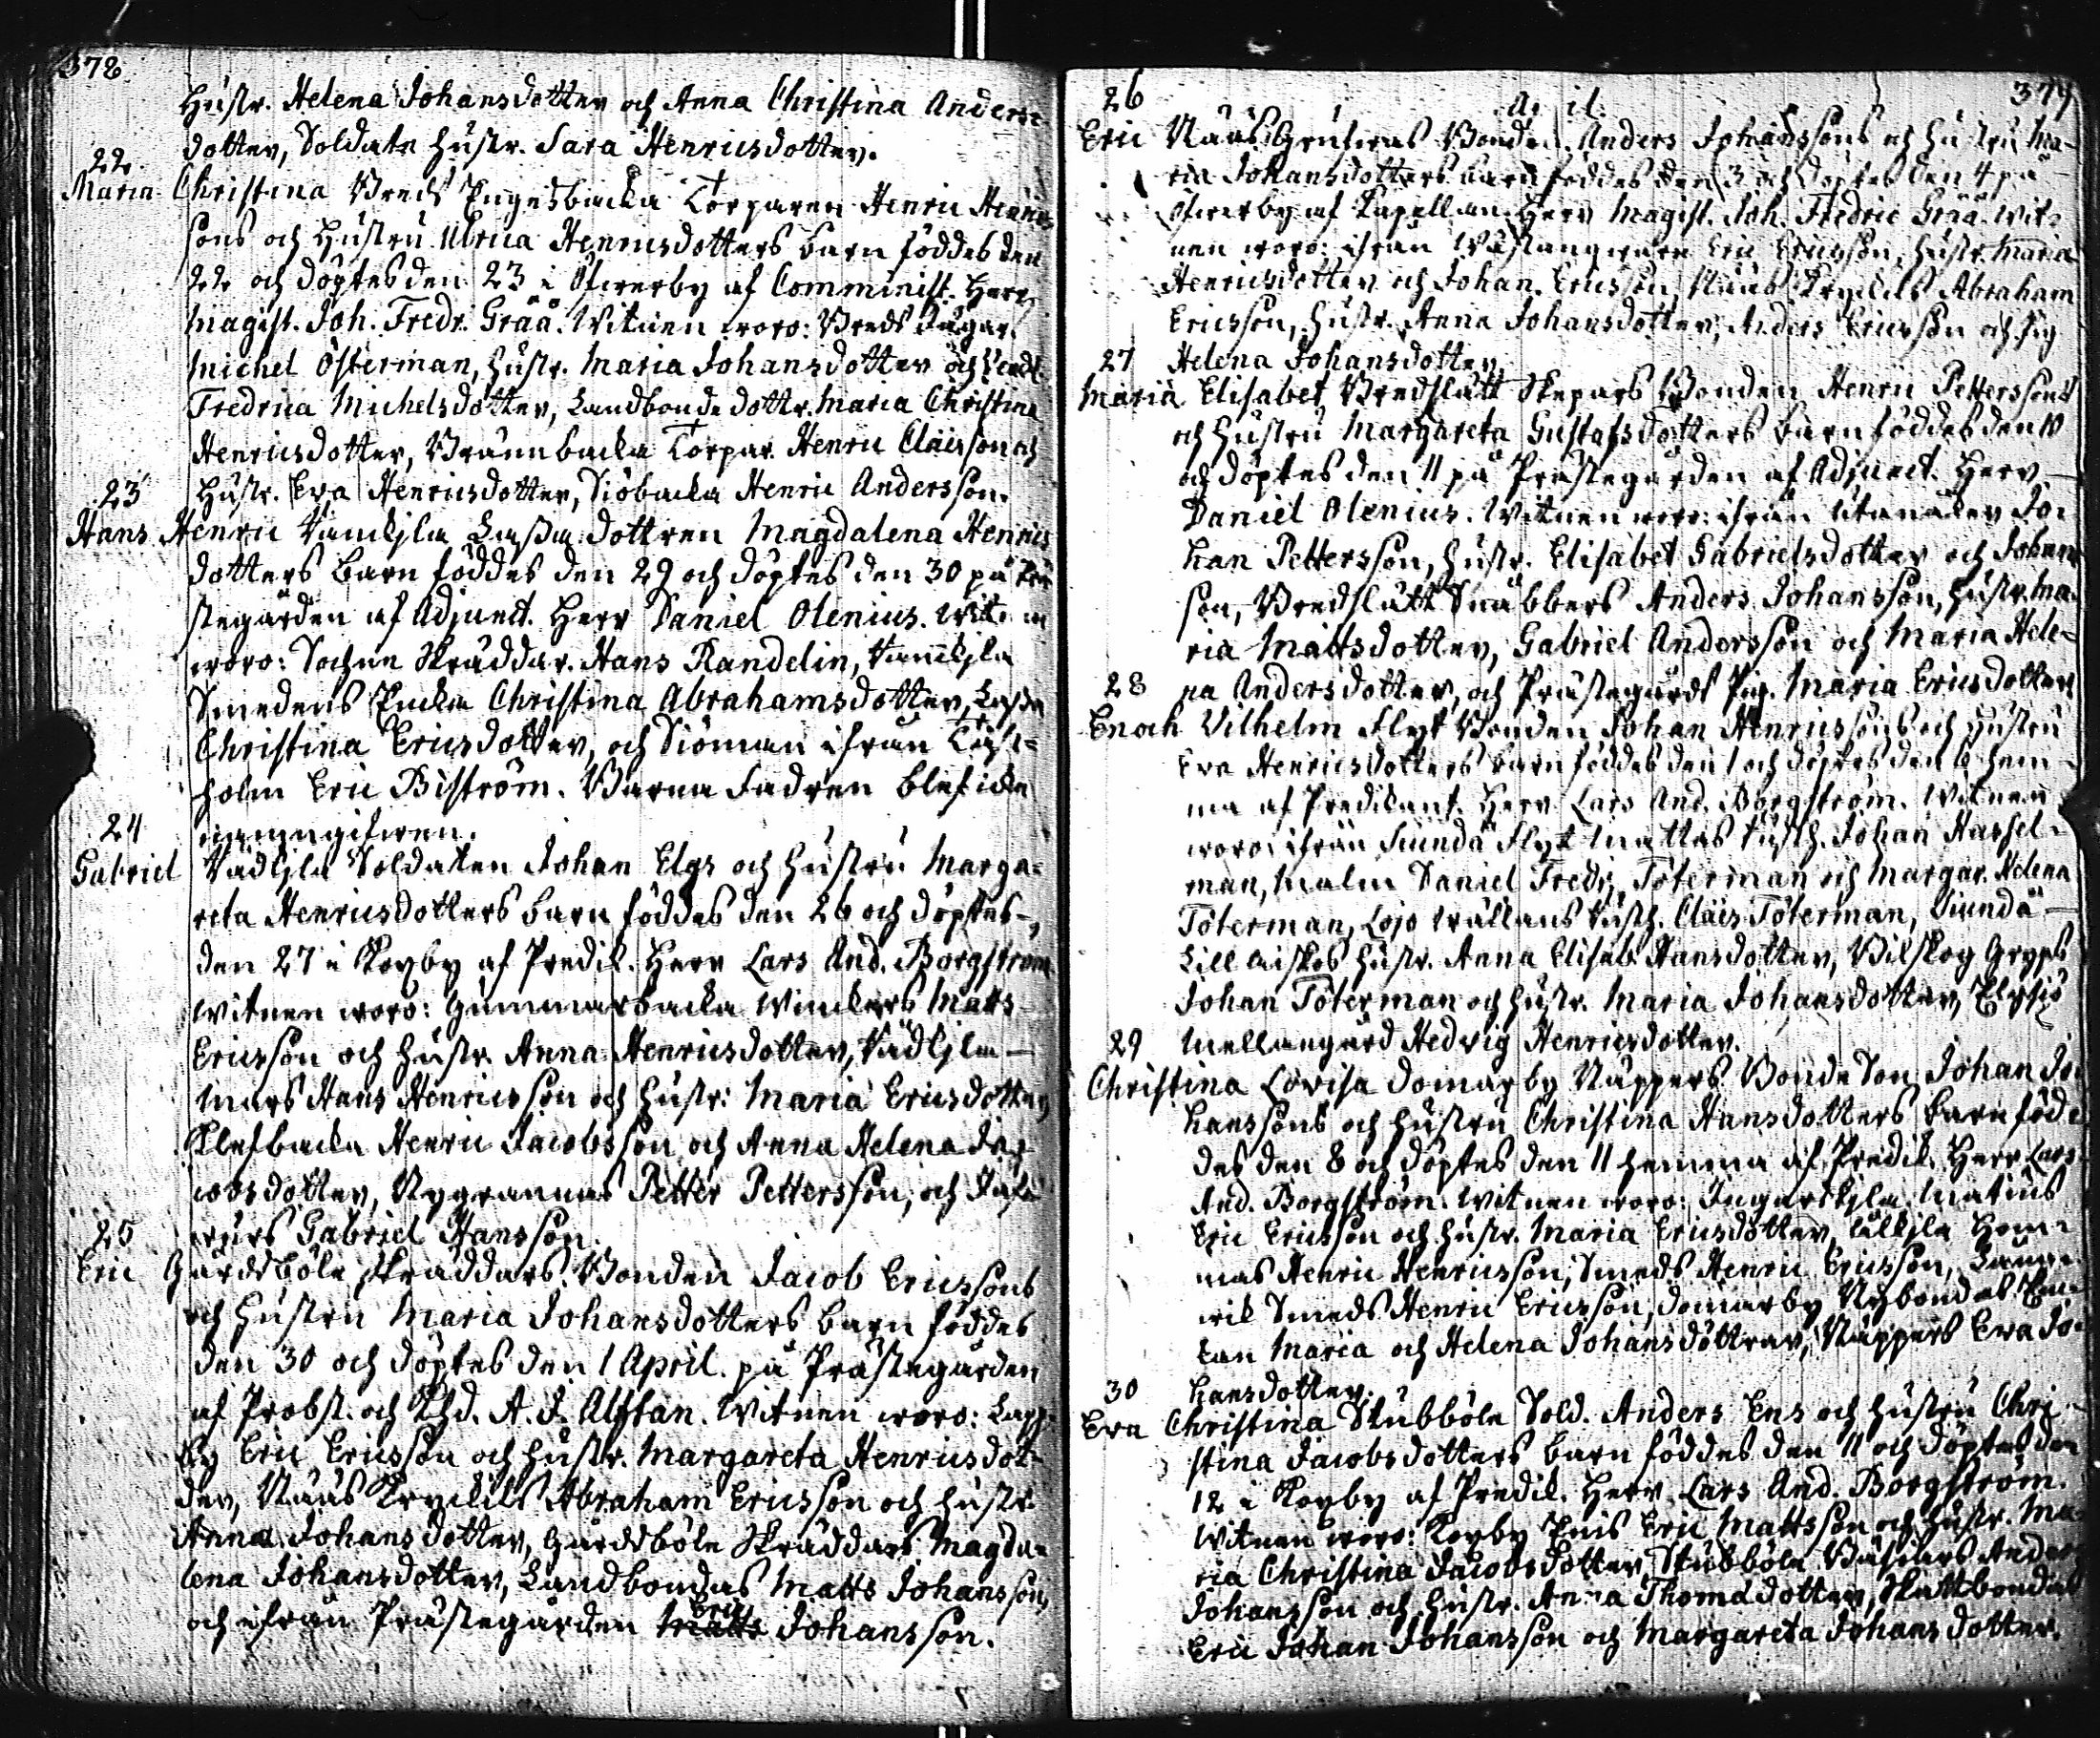 378
Hustr. Helena Johansdotter och Anna Christina Anders-
dotter, Soldats hustr. Sara Henricsdotter.
22
Maria Christina Breds Ingesbacka Torparen Henric Henric
sons och Hustru Ulrica Henricsdotters barn föddes den
22 och döptes den 23 i Öfwerby af Comminist. Herr
Magist. Joh. Fredr. Grää. Witnen woro: Breds
Michel Österman, hustr. Maria Johansdotter och
Fredrica Michelsdotter, Landbonde dottr. Maria Christina
Henricsdotter, Brännbacka Torpar. Henric Claësson och
Hustr. Eva Henricsdotter, Siöbacka Henric Andersson.
23
Hans Henric Vanckjla Lassa dottren Magdalena Henrics
dotters barn föddes den 29 och döptes den 30 på Prä
stegården af Adjunct. Herr Daniel Olenius. Witnen
woro: Sochne Skräddar. Hans Randelin, Vanckjla
Smedens Enka Christina Abrahamsdotter, Lassa
Christina Ericsdotter, och Siöman ifrån
holm Eric Biström. Barna Fadren blef icke
namngifwen.
24
Gabriel Vadkjla Soldaten Johan Elgs och Hustru Marga-
reta Henricsdotters barn föddes den 26 och döptes
den 27 i Koxby af Predik. Herr Lars And. Borgström
Witnen woro: Gunnarsbacka Winckers Matts
Ericsson och hustr. Anna Henricsdotter, Vadkjla
Mårs Hans Henricsson och hustr: Maria Ericsdotter
Klefbacka Henric Jacobsson och Anna Helena Ja-
cobsdotter, Nygrannas Petter Pettersson, och
Gabriel Hansson.
25
Eric Gårdsböle Skräddars Bonden Jacob Ericssons
och hustru Maria Johansdotters barn föddes
den 30 och döptes den 1 April. på Prästegården
af Probst. och Khd. A. J. Alftan. Witnen woro: Lapp-
by Eric Ericsson och hustr. Margareta Henricsdot-
ter, Näås Kryckils Abraham Ericsson och hustr.
Anna Johansdotter, Gårdsböle Skräddars Magda-
lena Johansdotter, Landbondas Matts Johansson,
och ifrån Prästegården Eric Johansson.
26
379
Eric Näås Grufwas Bonden Anders Johanssons och Hustru Ma-
ria Johansdotters barn föddes den 3 och döptes den 4 på
Öfwerby af Capellan Herr Magist. Joh. Fredric Grää. Wit-
nen woro: ifrån Wästangware Eric Ericsson, hustr. Maria
Henricsdotter och Johan Ericsson, Näås Kryckils Abraham
Ericsson, hustr. Anna Johansdotter, Anders Ericsson och Pig
Helena Johansdotter.
27
Maria Elisabet Bredslätt Skepars Bonden Henric Petterssons
och Hustru Margareta Gustafsdotters barn föddes den 10
och döptes den 11 på Prästegården af Adjunct. Herr
Daniel Olenius. Witnen woro: ifrån Utanåker Jo-
han Pettersson, hustr. Elisabet Gabrielsdotter och Johan
son, Bredslätt Snabbers Anders Johansson, hustr. Ma-
ria Mattsdotter, Gabriel Andersson och Maria Hele-
na Andersdotter, och Prästegårds Pig. Maria Ericsdotter
28
Enoch Vilhelm Flyt Bonden Johan Henricssons och Hustru
Eva Henricsdotters barn föddes den 1 och döptes den 6 hem-
ma af Predikant. Herr Lars And. Borgström. Witnen
woro: ifrån Siundå Flyt Mattas Johan Hassel-
man, Malm Daniel Fredr. Töterman och Margar. Helena
Töterman, Lojo Claës Töterman, Siundå
Lill hustr. Anna Elisab. Hansdotter, Bilskog Gryps
Johan Töterman och hustr. Maria Johansdotter,
Mellangård Hedvig Henricsdotter.
29
Christina Lovisa Domarby Näppers Bonde Son Johan Jo-
hanssons och Hustru Christina Hansdotters barn föd-
des den 8 och döptes den 11 hemma af Predik. Herr Lars
And. Borgström. Witnen woro: Ingarskjla Matius
Eric Ericsson och hustr. Maria Ericsdotter, Hom-
mas Henric Henricsson, Smeds Henric Ericsson,
Smeds Henric Ericsson, Domarby Nybondas
Maria och Helena Johansdöttrar, Näppers Eva Jo-
hansdotter.
30
Eva Christina Stubböle Sold. Anders Ens och Hustru Chri-
stina Jacobsdotters barn föddes den 11 och döptes den
12 i Koxby af Predik. Herr Lars And. Borgström.
Witnen woro: Koxby Eric Mattsson och hustr. Ma-
ria Christina Jacobsdotter, Stubböle Anders
Johansson och hustr. Anna Thomasdotter, Skattbondas
Eric Johan Johansson och Margareta Johansdotter.